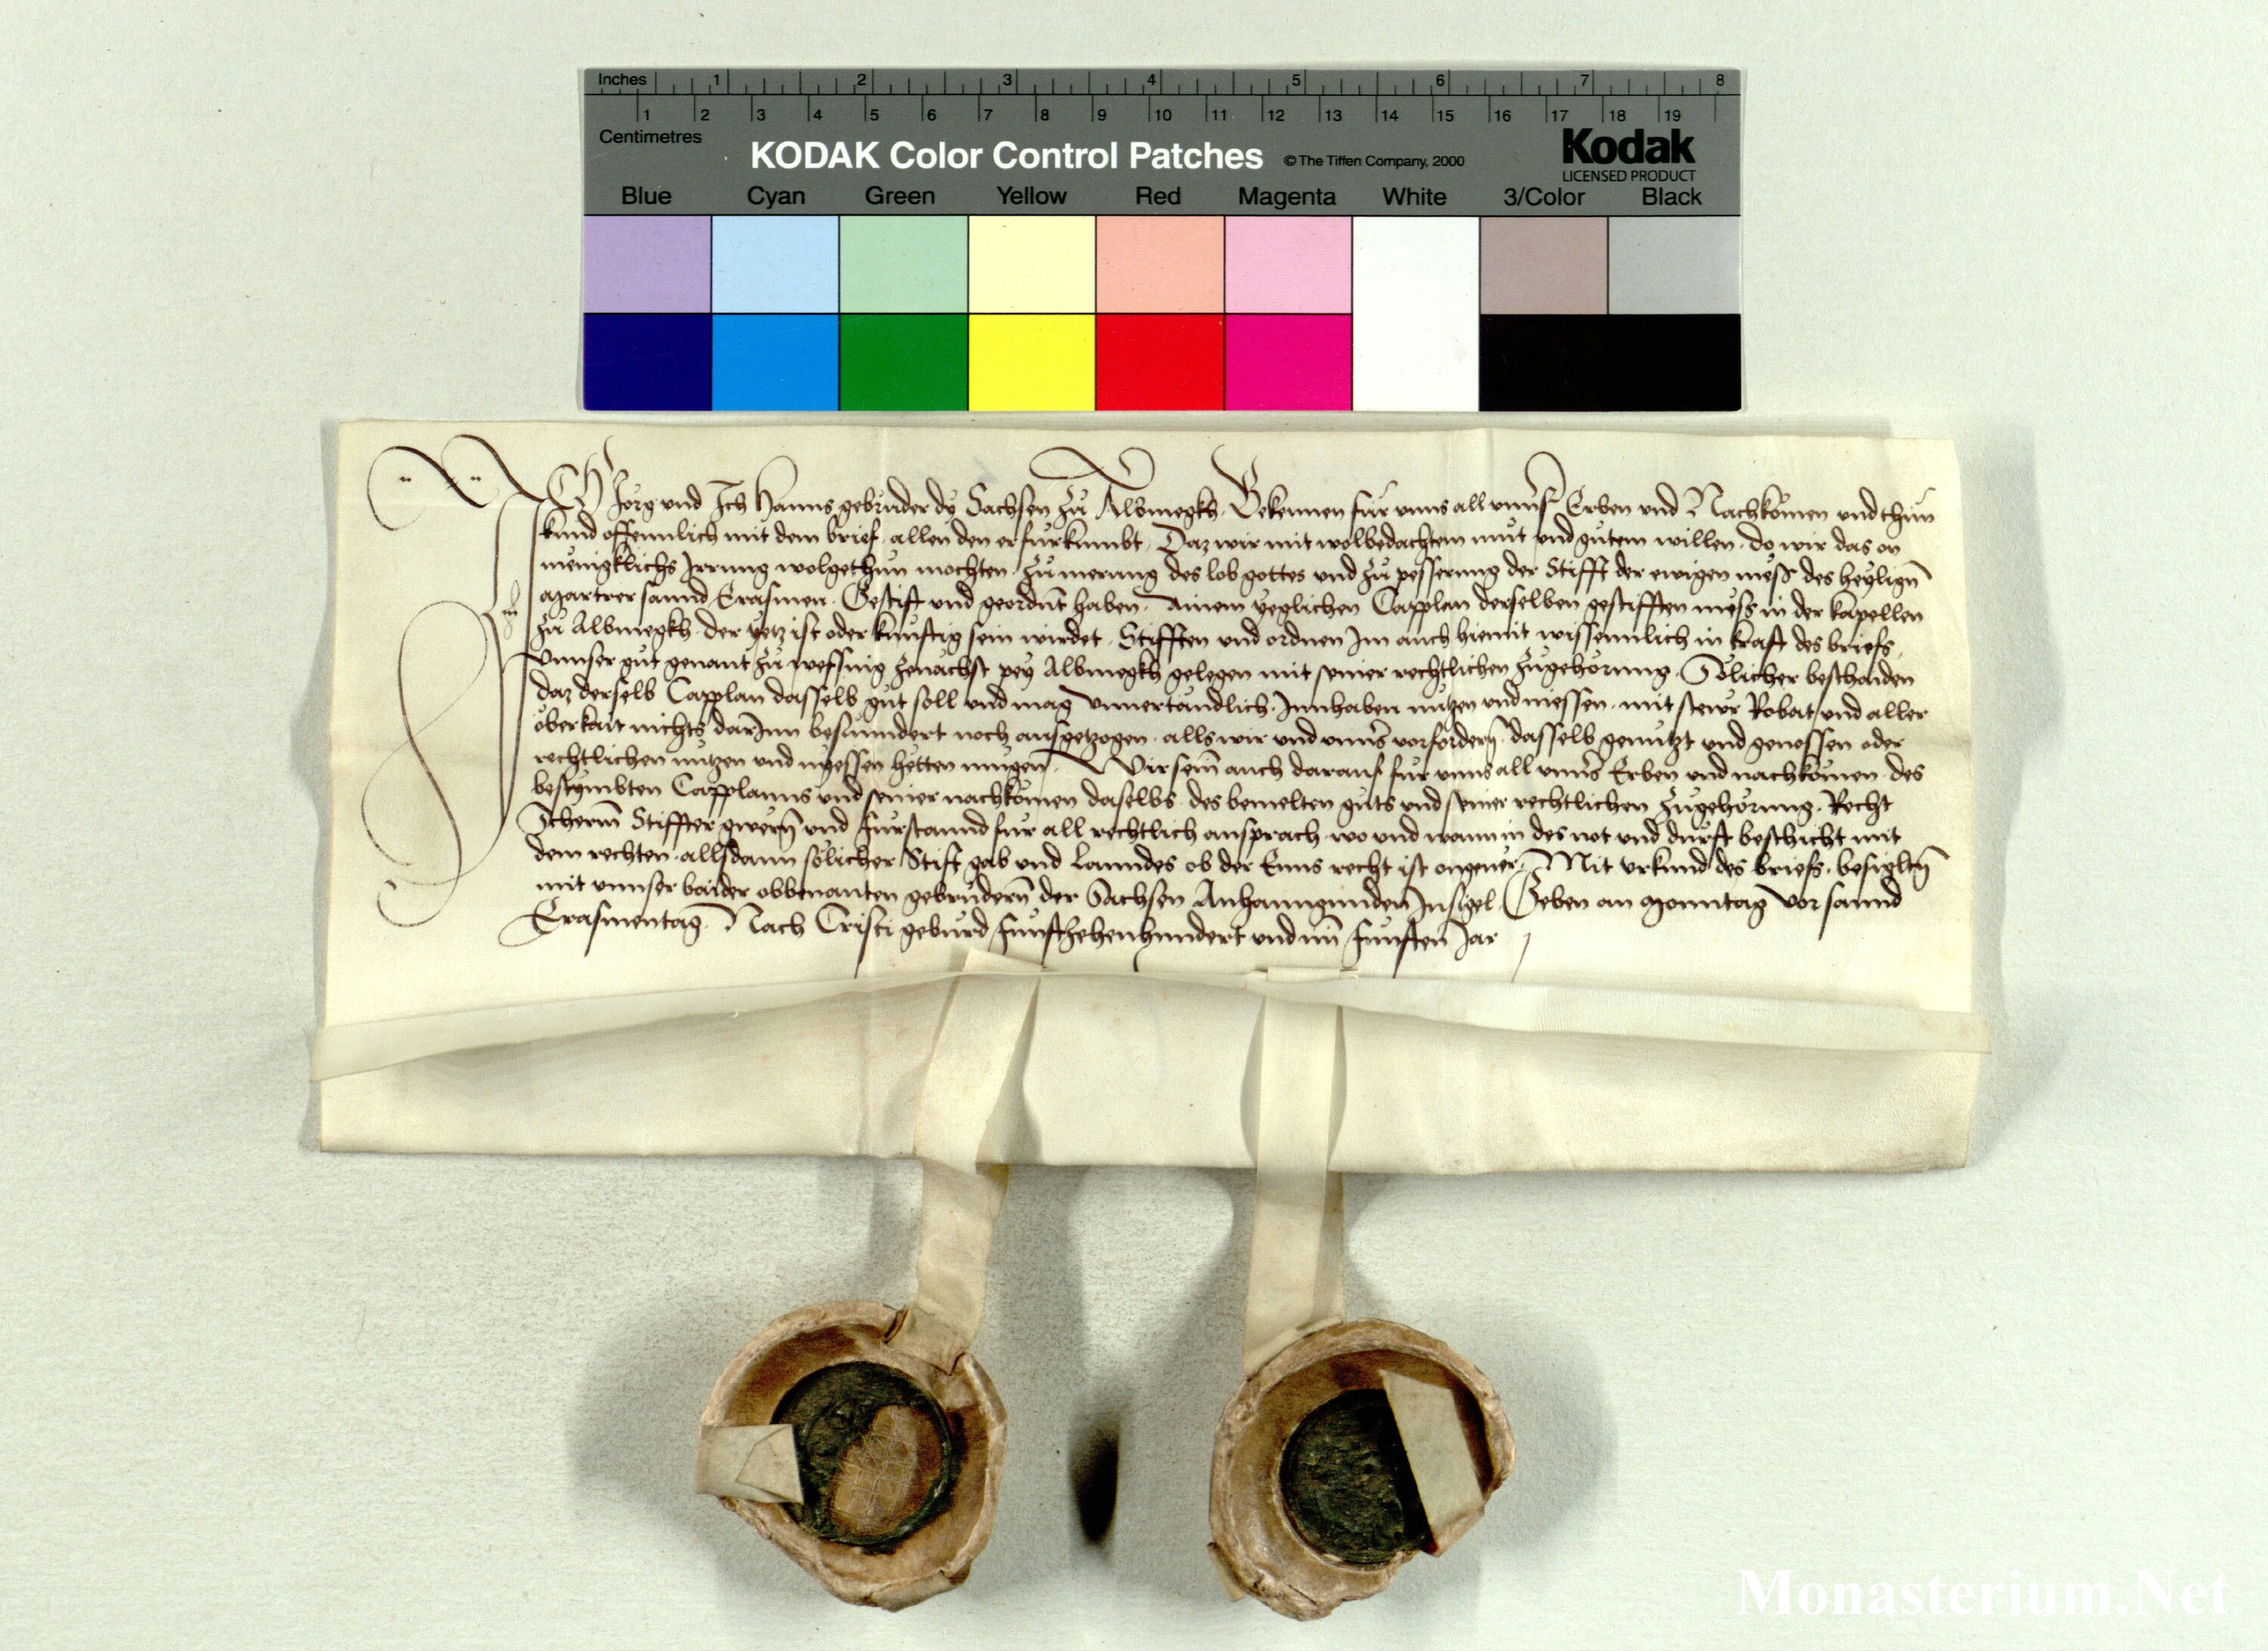 Inches 1 2 3 4 5 6 7 8
1 2 3 4 5 6 7 8 9 10 11 12 13 14 15 16 17 18 19
Centimetres
KODAK Color Control Patches © The Tiffen Company, 2000 Kodak
LICENSED PRODUCT
Blue Cyan Green Yellow Red Magenta White 3/Color Black
ICH Jorg und Ich Hanns gebrüder dy Sachsen zů Albmegkh Bekennen für unns all unnser Erben und Nachkömen und thůn
kund offennlich mit dem brief allen den er fürkumbt Daz wir mit wolbedachtem můt und gůtem willen do wir das on
menigklichs Irrung wolgethůn mochten zů merung des lob gottes und zů pesserung der Stifft der ewigen mess des heyligñ
Martrer sannd Erasmen Gestift und geordnt haben Ainem yeglichen Capplan derselben gestifften mess in der kapellen
zů Albmegkh der yetz ist oder kunftig sein wirdet Stifften und ordnen Im auch hiemit wissennlich in kraft des briefs
Unnser gůt genant zů zenächst pey Albmegkh gelegen mit seiner rechtlichen zůgehörung Sölicher beschaiden
daz derselb Capplan dasselb gůt soll und mag Innhaben nützen und niessen mit stewr Robat und aller
oberkait nichts darInn besunndert noch ausgetzogen alls wir und unns vorfordern dasselb genützt und genossen oder
rechtlichen nutzen und nyessen hetten mügen Wir sein auch darauf für unns all unns Erben und nachkömen des
bestymbten Capplanns und seiner nachkömen daselbs des bemelten gůts und seiner rechtlichen zůgehörung Recht
Scherm Stiffter gwern und fürstannd für all rechtlich ansprach wo und wann in des not und dürft beschicht mit
dem rechten allsdann sölicher Stift gab und Lanndes ob der Enns recht ist ongever Mit urkund des briefs besigltñ
mit unnser baider obbenanten gebrüdern der Sachsen Anhanngunden Insigel Geben an Monntag vor sannd
Erasmentag Nach Cristi gebůrd fünftzehenhundert und im fünften Jar
Monasterium.Net